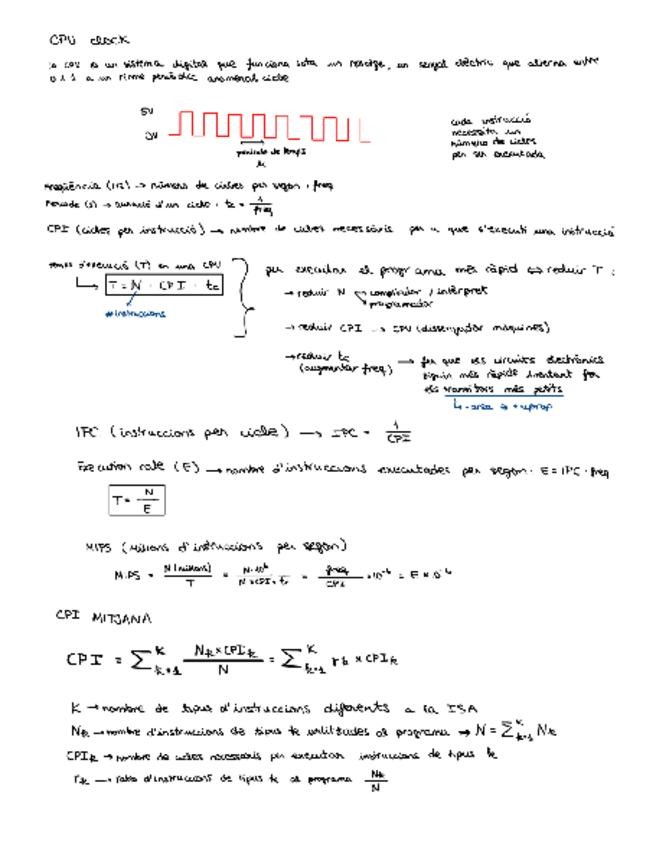 CPU clock
la CPU és un sistema digital que funciona sota un rellotge, un senyal elèctric que alterna entre
0 i 1 a un ritme periòdic anomenat cicle
5V
0V
període de temps
tc
cada instrucció
necessita un
número de cicles
per ser executada
Freqüència (Hz) → número de cicles per segon · freq
Període (s) → duració d'un cicle · tc = 1/freq
CPI (cicles per instrucció) → nombre de cicles necessaris per a que s'executi una instrucció
temps d'execució (T) en una CPU
T = N · CPI · tc
#instruccions
per executar el programa més ràpid ⇔ reduir T :
→ reduir N compilador / intèrpret
programador
→ reduir CPI → CPU (dissenyador màquines)
→ reduir tc
(augmentar freq)
→ fer que els circuits electrònics
siguin més ràpids intentant fer
els transistors més petits
IPC (instruccions per cicle) → IPC = 1/CPI
Execution rate (E) → nombre d'instruccions executades per segon · E = IPC · freq
T = N/E
MIPS (Milions d'instruccions per segon)
MIPS = N(milions)/T = N·10⁻⁶/N×CPI×tc = freq/CPI ×10⁻⁶ = E×10⁻⁶
CPI MITJANA
CPI = ∑ᴷₖ₌₁ Nk×CPIk/N = ∑ᴷₖ₌₁ rk × CPIk
K → nombre de tipus d'instruccions diferents a la ISA
Nk → nombre d'instruccions de tipus k utilitzades al programa → N = ∑ᴷₖ₌₁ Nk
CPIk → nombre de cicles necessaris per executar instruccions de tipus k
rk → ratio d'instruccions de tipus k al programa Nk/N